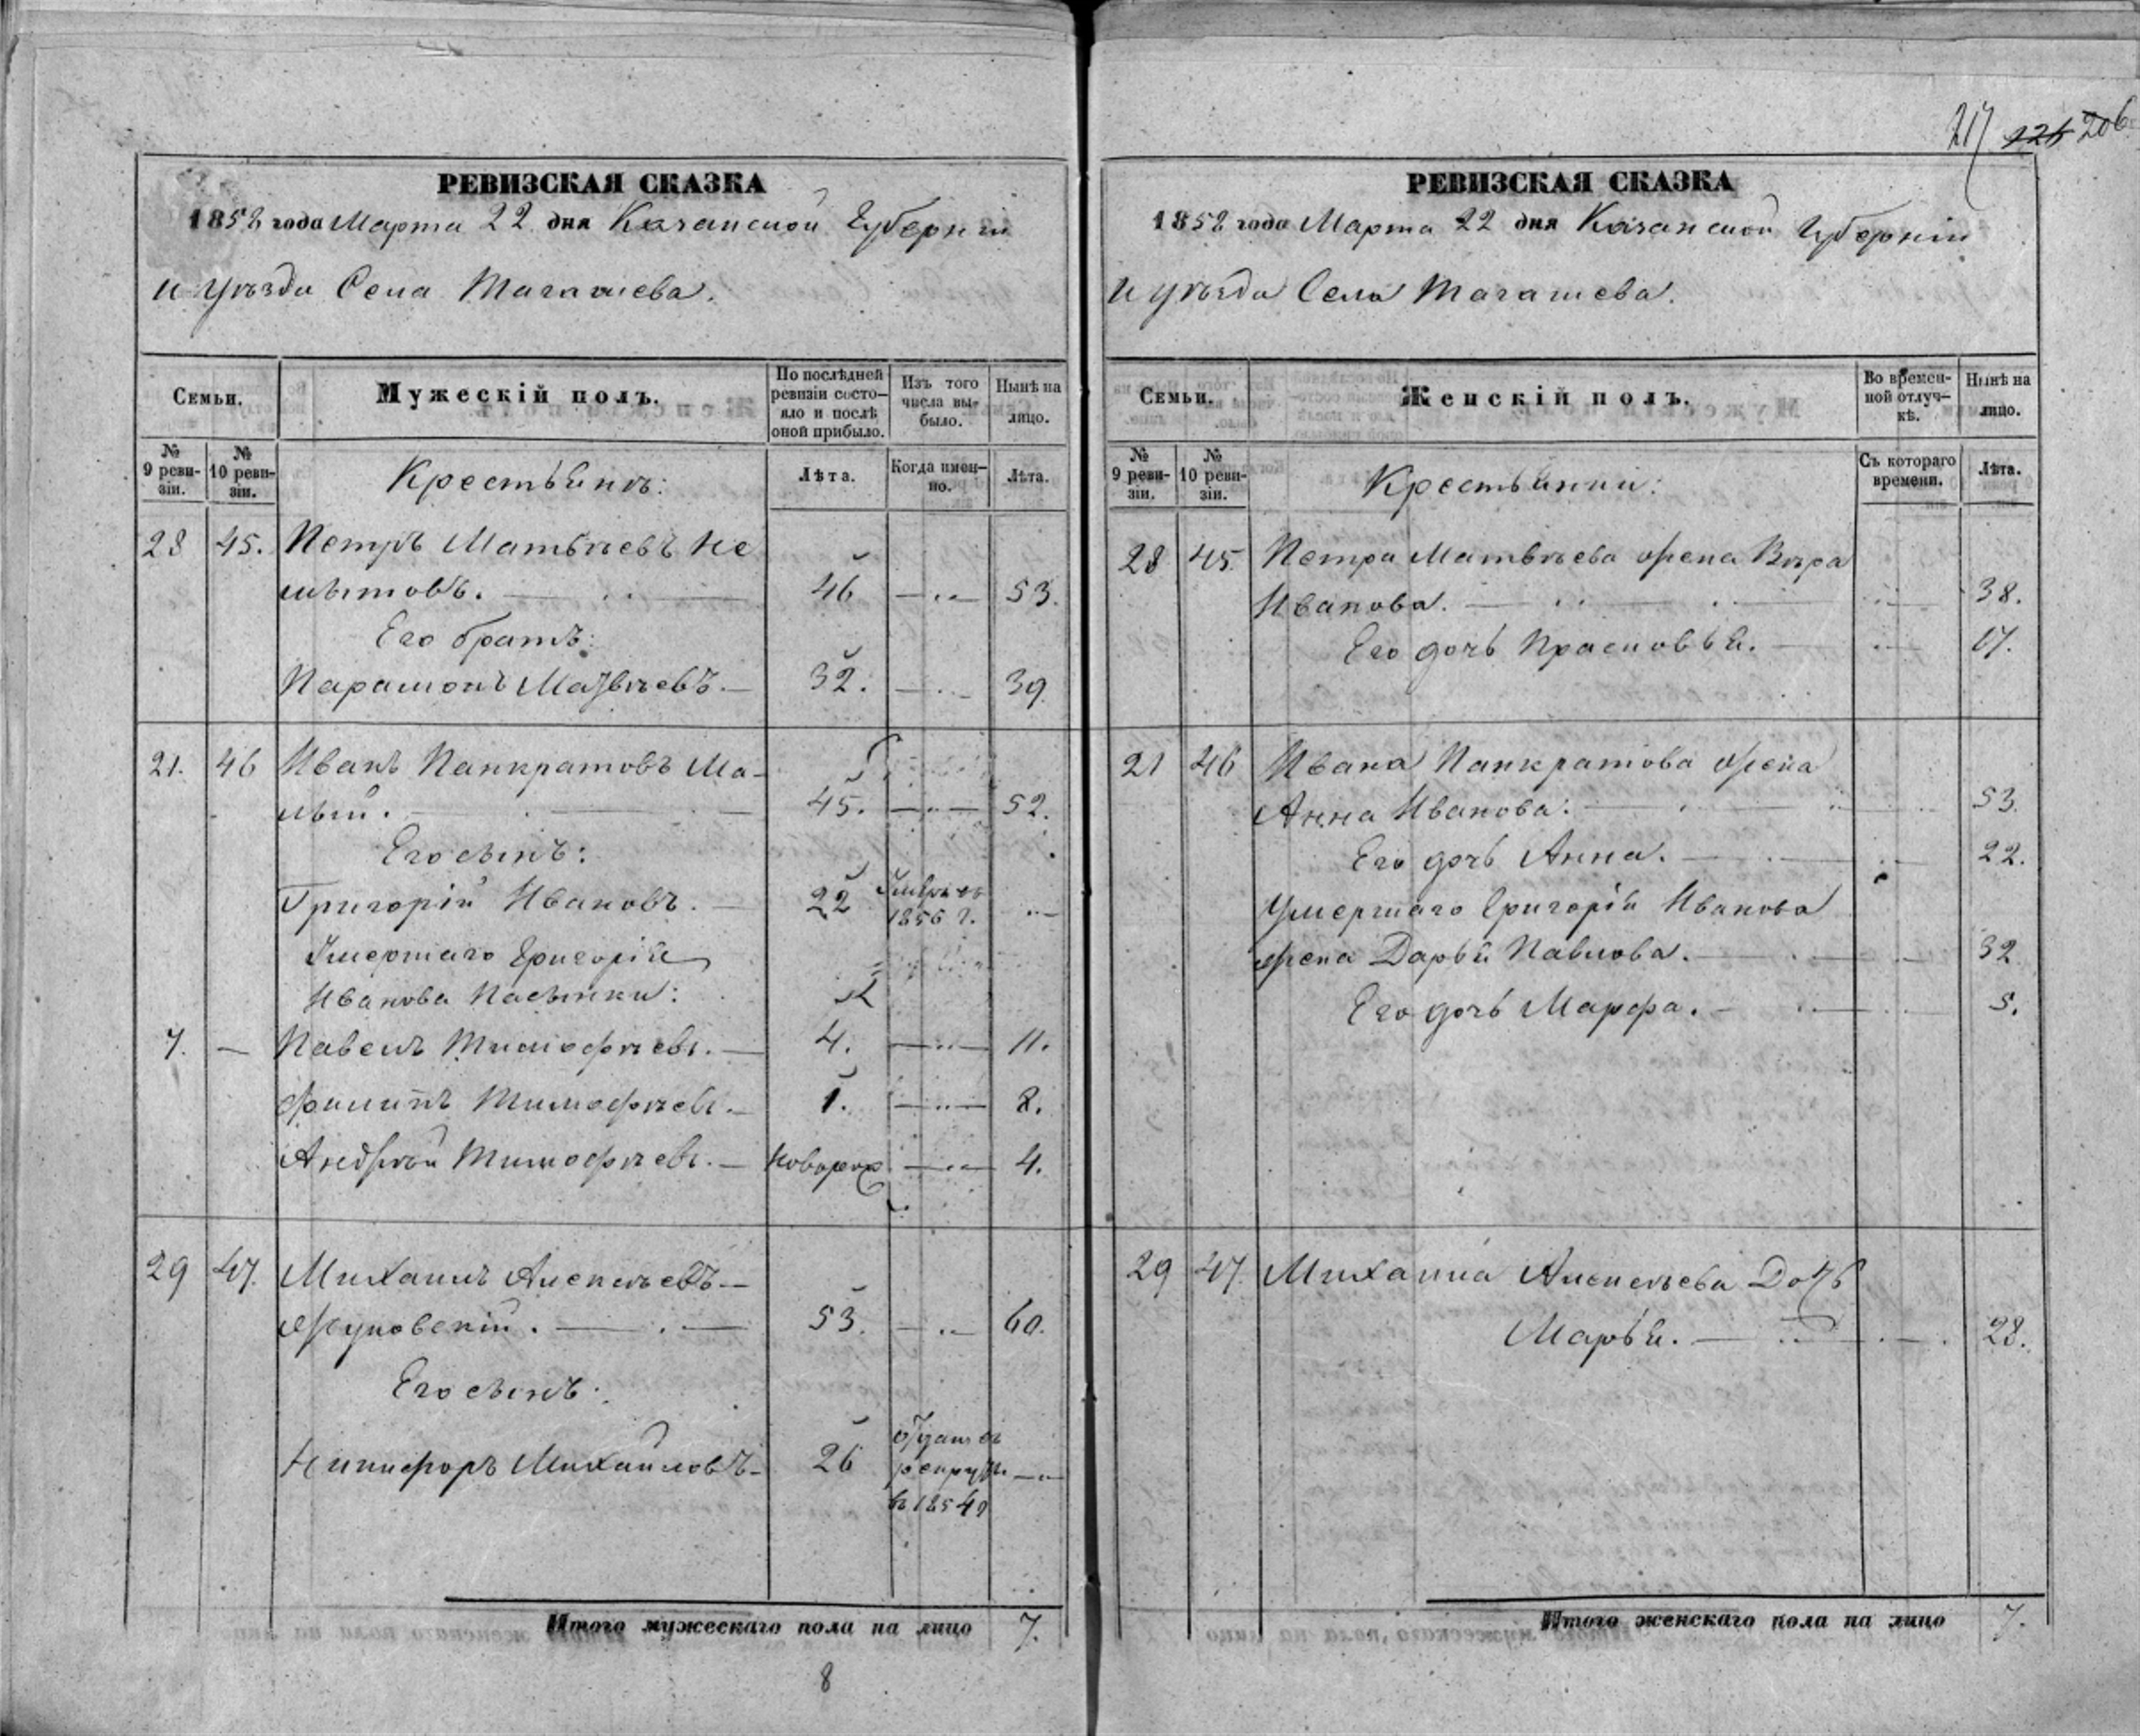 217 226 206
РЕВИЗСКАЯ СКАЗКА
1858 года Марта 22 дня Казанской Губерніи
и уѣзда Села Тагашева.
Семьи.
Мужескій полъ.
По послѣдней ревизіи состояло и послѣ оной прибыло.
Изъ того числа выбыло.
Нынѣ на лицо.
№ 9 ревизіи.
№ 10 ревизіи.
Крестьянъ:
Лѣта.
Когда именно.
Лѣта.
28 45. Петръ Матвѣевъ Не
мѣтовъ. 46 53.
Его братъ:
Парамонъ Матвѣевъ. 32. 39
21. 46 Иванъ Панкратовъ Ма-
лый. 45. 52.
Его сынъ:
Григорій Ивановъ. 22 Умеръ въ 1856 г.
Умершаго Григорія
Иванова Пасынки:
7. Павелъ Тимофѣевъ. 4. 11.
Филипъ Тимофѣевъ. 1. 8.
Андрѣй Тимофѣевъ. новорож 4.
29 47. Михаилъ Алексѣевъ
Жуковскій. 53. 60.
Его сынъ:
Никифоръ Михайловъ 26 Отданъ въ рекруты въ 1854 г
Итого мужескаго пола на лицо 7.
8
РЕВИЗСКАЯ СКАЗКА
1858 года Марта 22 дня Казанской Губерніи
и уѣзда Села Тагашева.
Семьи.
Женскій полъ.
Во временной отлучкѣ.
Нынѣ на лицо.
№ 9 ревизіи.
№ 10 ревизіи.
Крестьянки:
Съ котораго времени.
Лѣта.
28 45 Петра Матвѣева жена Вѣра
Иванова. 38.
Его дочь Прасковья. 17.
21 46 Ивана Панкратова жена
Анна Иванова: 53.
Его дочь Анна. 22.
Умершаго Григорія Иванова
жена Дарья Павлова. 32
Его дочь Марфа. 5.
29 47. Михаила Алексѣева Дочь
Марья. 28.
Итого женскаго пола на лицо 7.